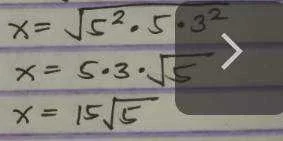 x = √5² · 5 · 3²
x = 5 · 3 · √5
x = 15√5